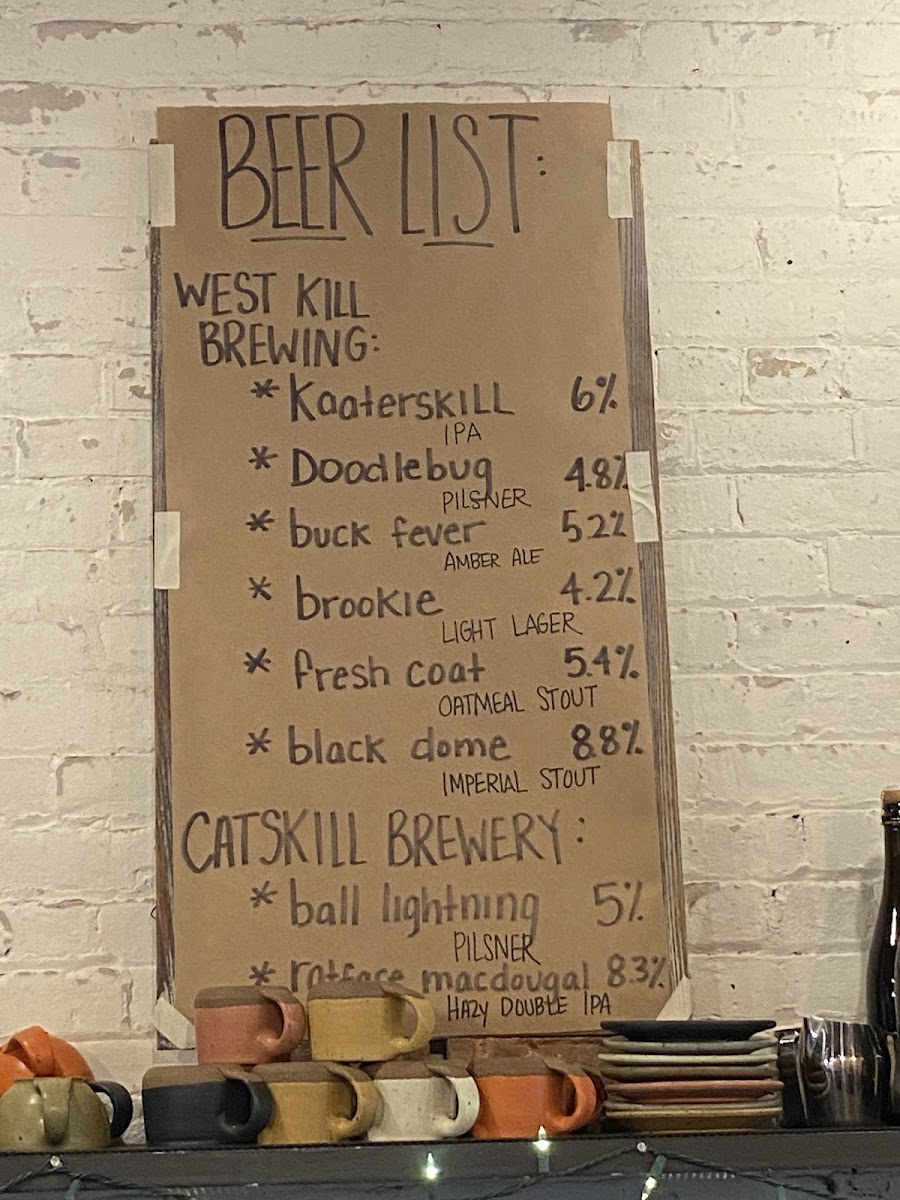 BEER LIST:
WEST KILL
BREWING:
* Kaaterskill 6%
IPA
* Doodlebug 4.8%
PILSNER
* buck fever 5.2%
AMBER ALE
* brookie 4.2%
LIGHT LAGER
* fresh coat 5.4%
OATMEAL STOUT
* black dome 8.8%
IMPERIAL STOUT
CATSKILL BREWERY:
* ball lightning 5%
PILSNER
* ratface macdougal 8.3%
HAZY DOUBLE IPA